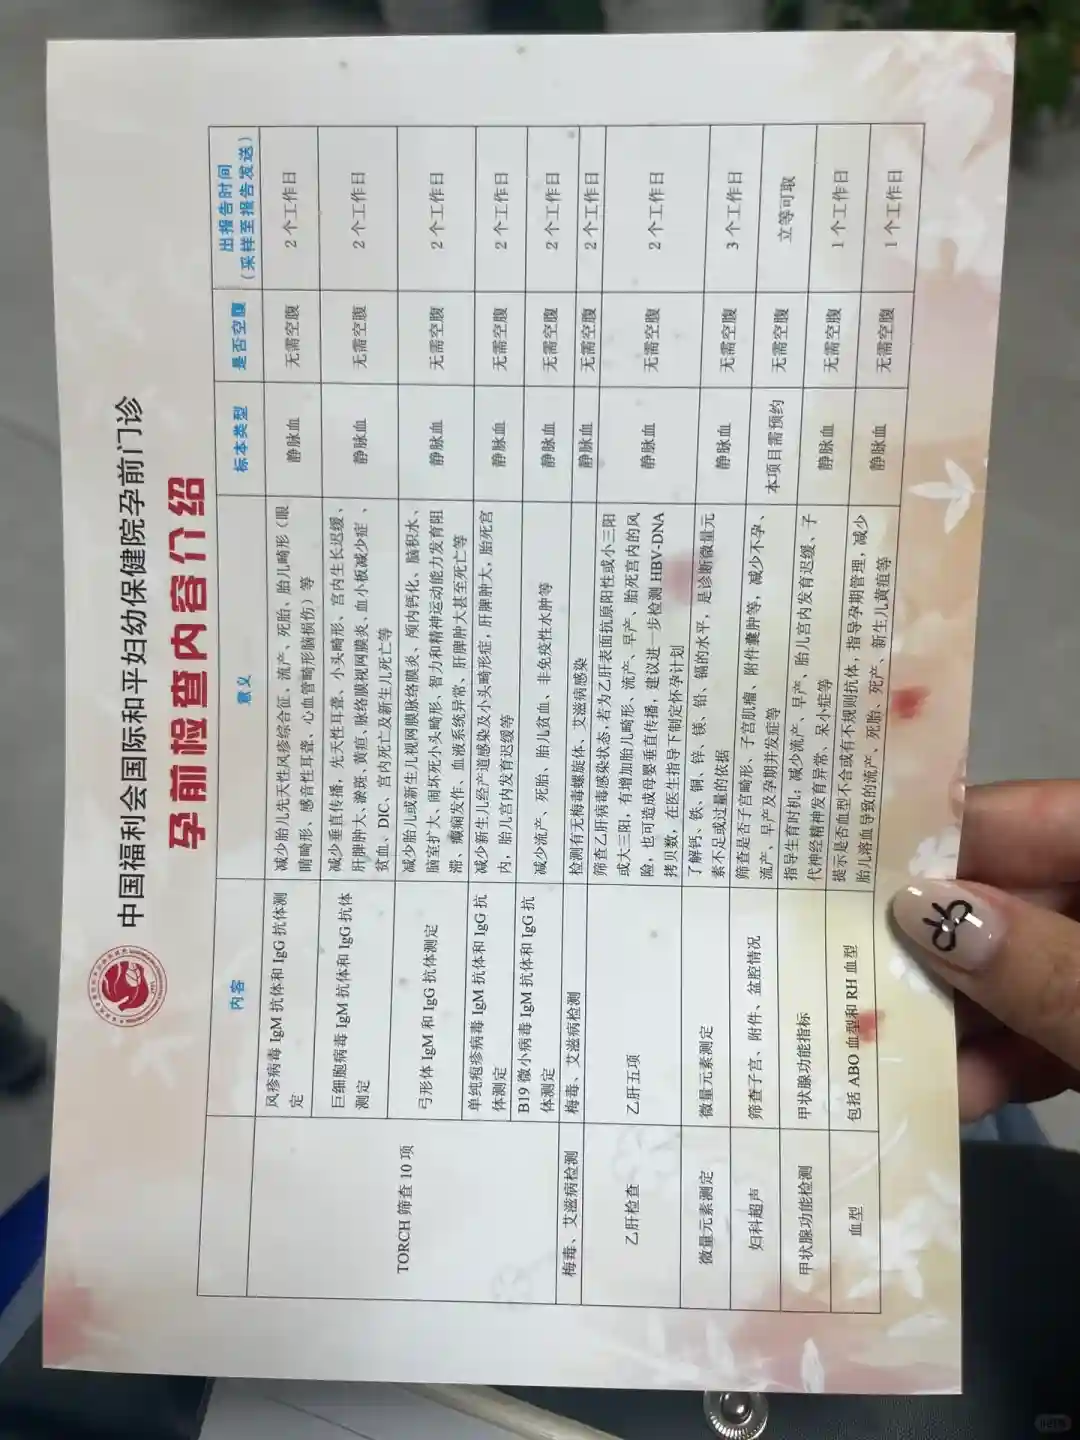 中国福利会国际和平妇幼保健院孕前门诊
孕前检查内容介绍
内容 意义 标本类型 是否空腹 出报告时间
（采样至报告发送）
TORCH 筛查 10 项
风疹病毒 IgM 抗体和 IgG 抗体测
定
减少胎儿先天性风疹综合征、流产、死胎、胎儿畸形（眼
睛畸形、感音性耳聋、心血管畸形脑损伤）等
静脉血 无需空腹 2 个工作日
巨细胞病毒 IgM 抗体和 IgG 抗体
测定
减少垂直传播，先天性耳聋、小头畸形、宫内生长迟缓、
肝脾肿大、淤斑、黄疸、脉络膜视网膜炎、血小板减少症、
贫血、DIC、宫内死亡及新生儿死亡等
静脉血 无需空腹 2 个工作日
弓形体 IgM 和 IgG 抗体测定
减少胎儿或新生儿视网膜脉络膜炎、颅内钙化、脑积水、
脑室扩大、闹坏死小头畸形、智力和精神运动能力发育阻
滞、癫痫发作、血液系统异常、肝脾肿大甚至死亡等
静脉血 无需空腹 2 个工作日
单纯疱疹病毒 IgM 抗体和 IgG 抗
体测定
减少新生儿经产道感染及小头畸形症，肝脾肿大，胎死宫
内，胎儿宫内发育迟缓等
静脉血 无需空腹 2 个工作日
B19 微小病毒 IgM 抗体和 IgG 抗
体测定
减少流产、死胎、胎儿贫血、非免疫性水肿等
静脉血 无需空腹 2 个工作日
梅毒、艾滋病检测 梅毒、艾滋病检测 检测有无梅毒螺旋体、艾滋病感染 静脉血 无需空腹 2 个工作日
乙肝检查 乙肝五项
筛查乙肝病毒感染状态，若为乙肝表面抗原阳性或小三阳
或大三阳，有增加胎儿畸形、流产、早产、胎死宫内的风
险，也可造成母婴垂直传播，建议进一步检测 HBV-DNA
拷贝数，在医生指导下制定怀孕计划
静脉血 无需空腹 2 个工作日
微量元素测定 微量元素测定
了解钙、铁、铜、锌、镁、铅、镉的水平，是诊断微量元
素不足或过量的依据
静脉血 无需空腹 3 个工作日
妇科超声 筛查子宫、附件、盆腔情况
筛查是否子宫畸形、子宫肌瘤、附件囊肿等，减少不孕、
流产、早产及孕期并发症等
本项目需预约 无需空腹 立等可取
甲状腺功能检测 甲状腺功能指标
指导生育时机；减少流产、早产、胎儿宫内发育迟缓、子
代神经精神发育异常、呆小症等
静脉血 无需空腹 1 个工作日
血型 包括 ABO 血型和 RH 血型
提示是否血型不合或有不规则抗体，指导孕期管理，减少
胎儿溶血导致的流产、死胎、死产、新生儿黄疸等
静脉血 无需空腹 1 个工作日